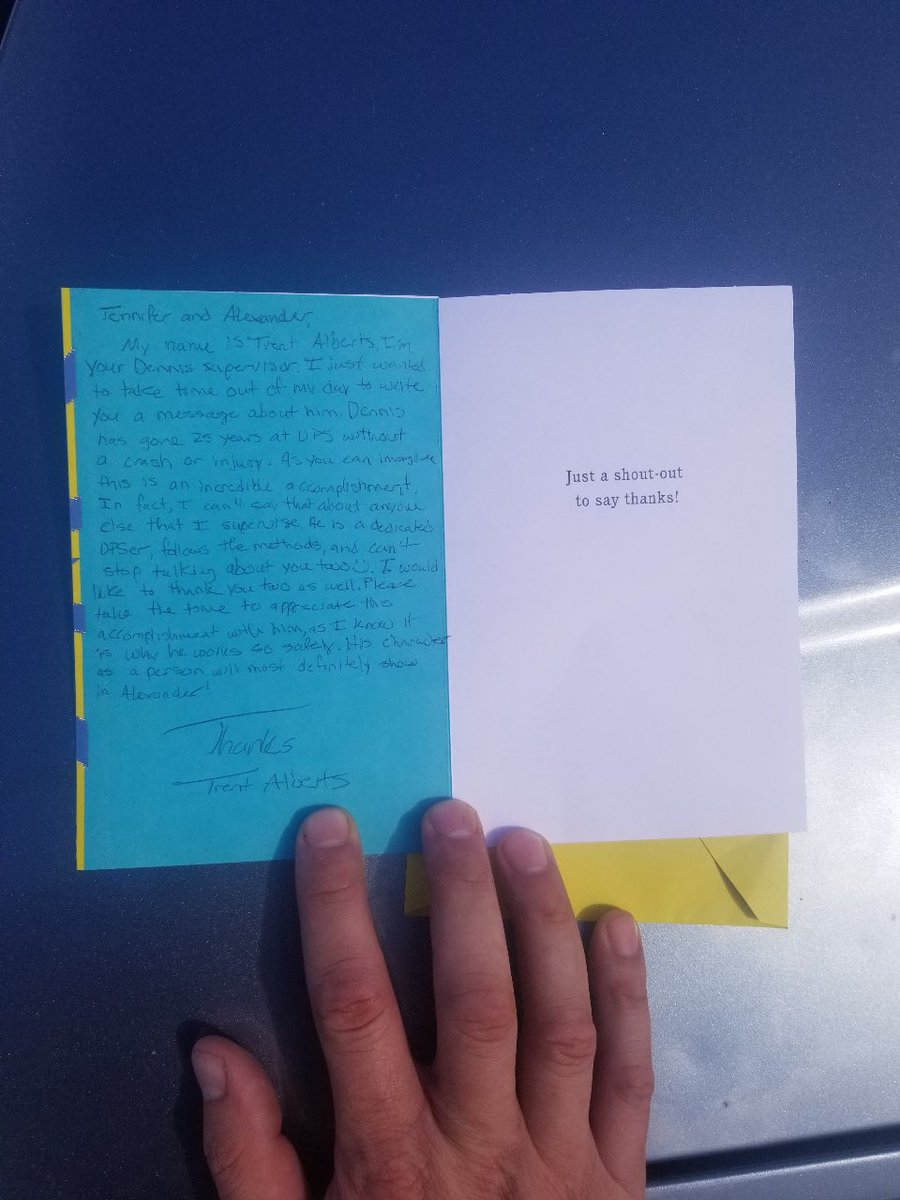 Jennifer and Alexander,
My name is Trent Alberts, I'm
your Dennis supervisor. I just wanted
to take time out of my day to write
you a message about him. Dennis
has gone 25 years at UPS without
a crash or injury. As you can imagine
this is an incredible accomplishment.
In fact, I can't say that about anyone
else that I supervise. He is a dedicated
UPSer, follows the methods, and can't
stop talking about you two☺. I would
like to thank you two as well. Please
take the time to appreciate this
accomplishment with him, as I know it
is why he works so safely. His character
as a person will most definitely show
in Alexander!
Thanks
Trent Alberts
Just a shout-out
to say thanks!